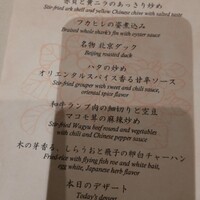 黄ニラのあっさり炒め
Stir-fried ark shell and yellow Chinese chive with salted taste
フカヒレの姿煮込み
Braised whole shark's fin with oyster sauce
名物 北京ダック
Beijing roasted duck
ハタの炒め
オリエンタルスパイス香る甘辛ソース
Stir-fried grouper with sweet and chili sauce,
oriental spice flavor
和牛ランプ肉の細切りと空豆
マコモ茸の麻辣炒め
Stir-fried Wagyu beef round and vegetables
with chili and Chinese pepper
木の芽香る、しらうおと筏子の卵白チャーハン
Fried rice with flying fish roe and white bait,
egg white, Japanese herb flavor
本日のデザート
Today's dessert